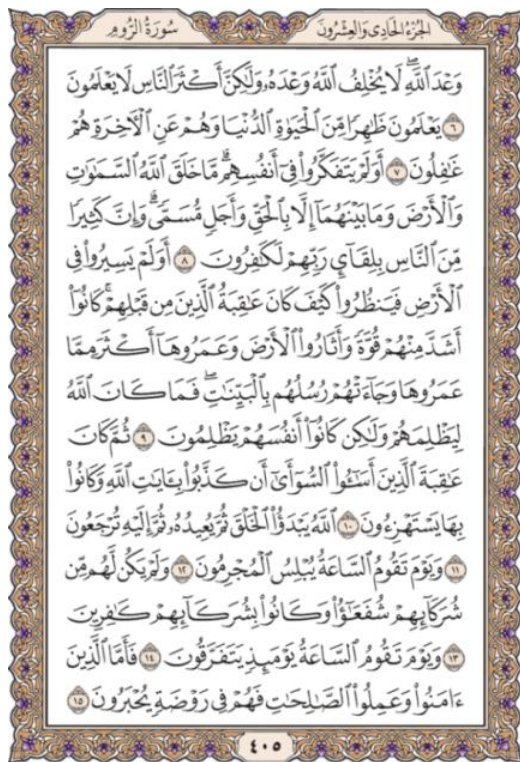 الجزء الحادي والعشرون
سورة الروم
وَعْدَ ٱللَّهِۖ لَا يُخْلِفُ ٱللَّهُ وَعْدَهُۥ وَلَٰكِنَّ أَكْثَرَ ٱلنَّاسِ لَا يَعْلَمُونَ
٦ يَعْلَمُونَ ظَٰهِرًا مِّنَ ٱلْحَيَوٰةِ ٱلدُّنْيَا وَهُمْ عَنِ ٱلْءَاخِرَةِ هُمْ
غَٰفِلُونَ ٧ أَوَلَمْ يَتَفَكَّرُوا۟ فِىٓ أَنفُسِهِمۗ مَّا خَلَقَ ٱللَّهُ ٱلسَّمَٰوَٰتِ
وَٱلْأَرْضَ وَمَا بَيْنَهُمَآ إِلَّا بِٱلْحَقِّ وَأَجَلٍ مُّسَمًّىۗ وَإِنَّ كَثِيرًا
مِّنَ ٱلنَّاسِ بِلِقَآئِ رَبِّهِمْ لَكَٰفِرُونَ ٨ أَوَلَمْ يَسِيرُوا۟ فِى
ٱلْأَرْضِ فَيَنظُرُوا۟ كَيْفَ كَانَ عَٰقِبَةُ ٱلَّذِينَ مِن قَبْلِهِمْۚ كَانُوٓا۟
أَشَدَّ مِنْهُمْ قُوَّةً وَأَثَارُوا۟ ٱلْأَرْضَ وَعَمَرُوهَآ أَكْثَرَ مِمَّا
عَمَرُوهَا وَجَآءَتْهُمْ رُسُلُهُم بِٱلْبَيِّنَٰتِۖ فَمَا كَانَ ٱللَّهُ
لِيَظْلِمَهُمْ وَلَٰكِن كَانُوٓا۟ أَنفُسَهُمْ يَظْلِمُونَ ٩ ثُمَّ كَانَ
عَٰقِبَةَ ٱلَّذِينَ أَسَٰٓـُٔوا۟ ٱلسُّوٓأَىٰٓ أَن كَذَّبُوا۟ بِـَٔايَٰتِ ٱللَّهِ وَكَانُوا۟
بِهَا يَسْتَهْزِءُونَ ١٠ ٱللَّهُ يَبْدَؤُا۟ ٱلْخَلْقَ ثُمَّ يُعِيدُهُۥ ثُمَّ إِلَيْهِ تُرْجَعُونَ
١١ وَيَوْمَ تَقُومُ ٱلسَّاعَةُ يُبْلِسُ ٱلْمُجْرِمُونَ ١٢ وَلَمْ يَكُن لَّهُم مِّن
شُرَكَآئِهِمْ شُفَعَٰٓؤُا۟ وَكَانُوا۟ بِشُرَكَآئِهِمْ كَٰفِرِينَ
١٣ وَيَوْمَ تَقُومُ ٱلسَّاعَةُ يَوْمَئِذٍ يَتَفَرَّقُونَ ١٤ فَأَمَّا ٱلَّذِينَ
ءَامَنُوا۟ وَعَمِلُوا۟ ٱلصَّٰلِحَٰتِ فَهُمْ فِى رَوْضَةٍ يُحْبَرُونَ ١٥
٤٠٥